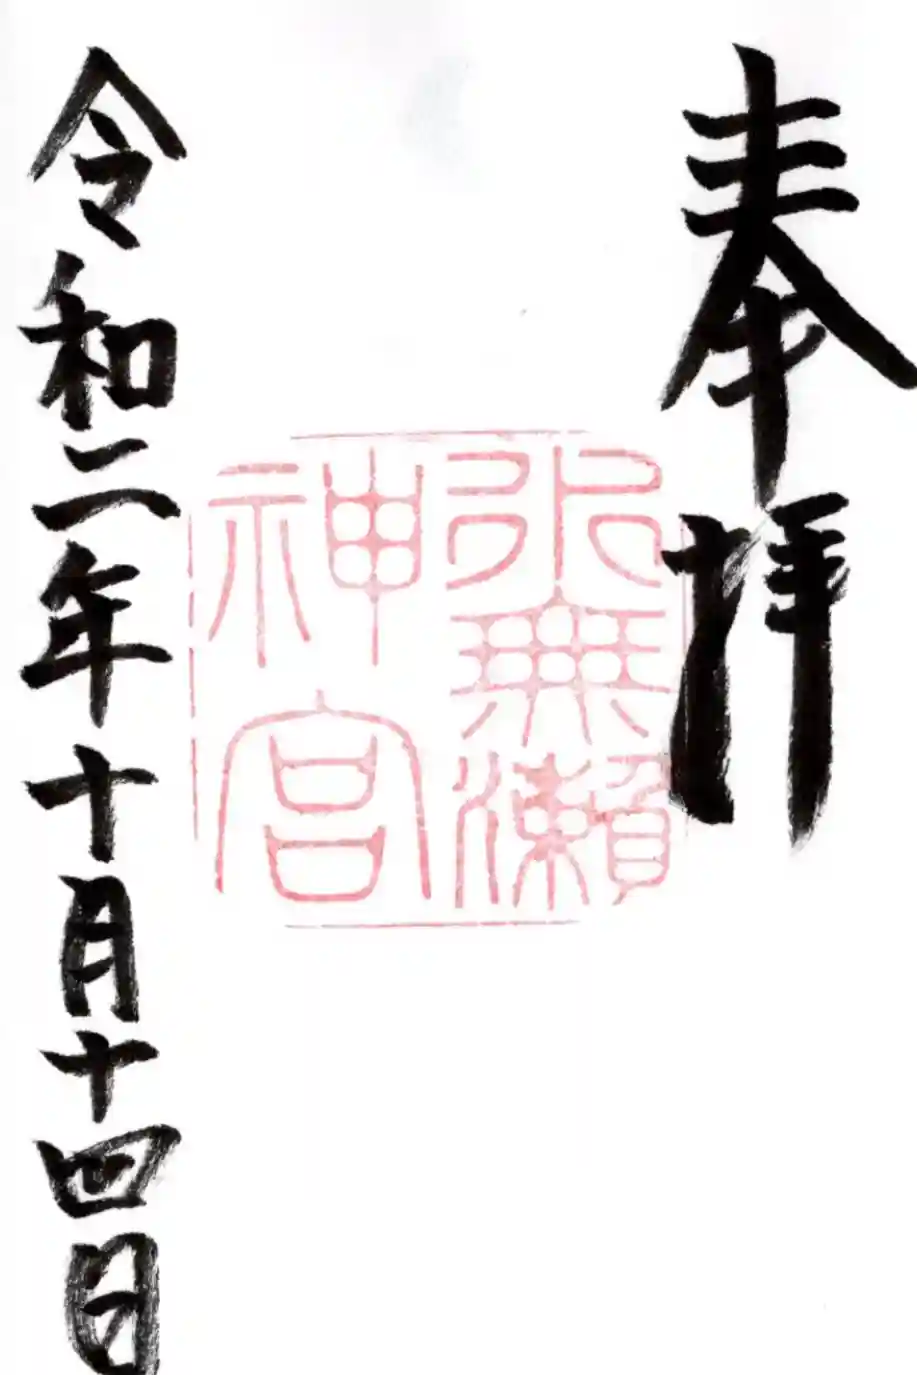 奉拝
水無瀬
神宮
令和二年十月十四日